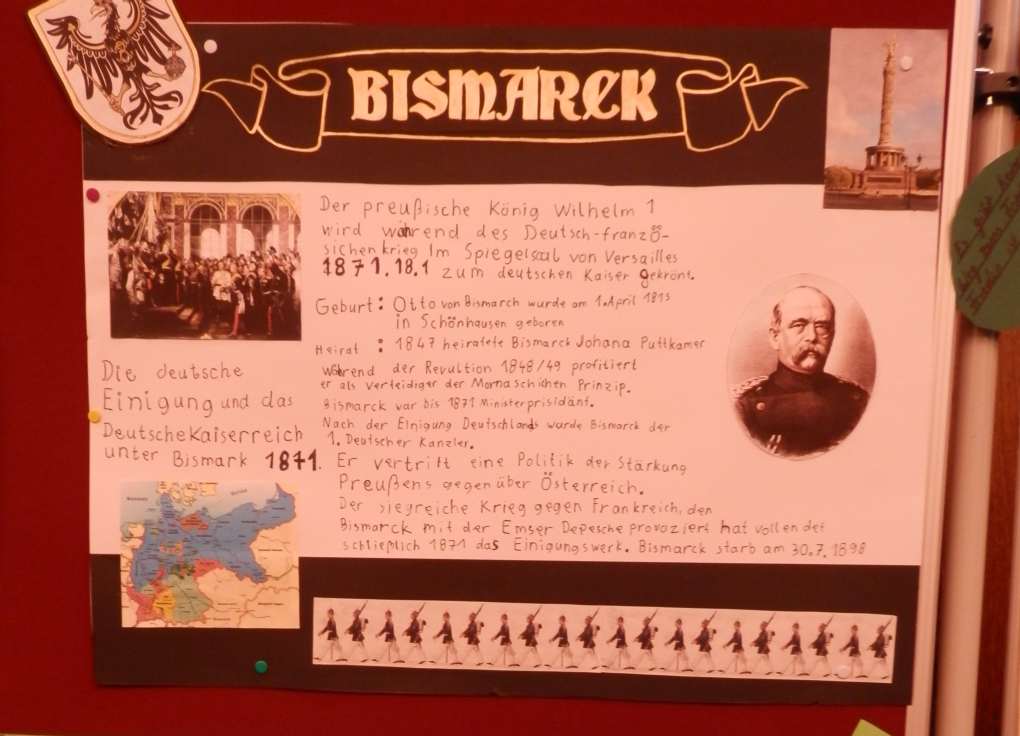 BISMARCK
Der preußische König Wilhelm 1
wird während des Deutsch-franzö-
sichenkrieg Im Spiegelsaal von Versailles
1871.18.1 zum deutschen Kaiser gekrönt.
Geburt: Otto von Bismarch wurde am 1.April 1815
in Schönhausen geboren
Heirat : 1847 heiratete Bismarck Johana Puttkamer
während der Revultion 1848/49 profitiert
er als Verteidiger der Mornaschichen Prinzip.
Bismarck war bis 1871 Ministerprisidänt.
Nach der Einigung Deutschlands wurde Bismarck der
1. Deutscher Kanzler.
Er vertritt eine Politik der Stärkung
Preußens gegenüber Österreich.
Der siegreiche Krieg gegen Frankreich, den
Bismarck mit der Emser Depesche provoziert hat vollendet
schließlich 1871 das Einigungswerk. Bismarck starb am 30.7.1898
Die deutsche
Einigung und das
Deutsche Kaiserreich
unter Bismark 1871.